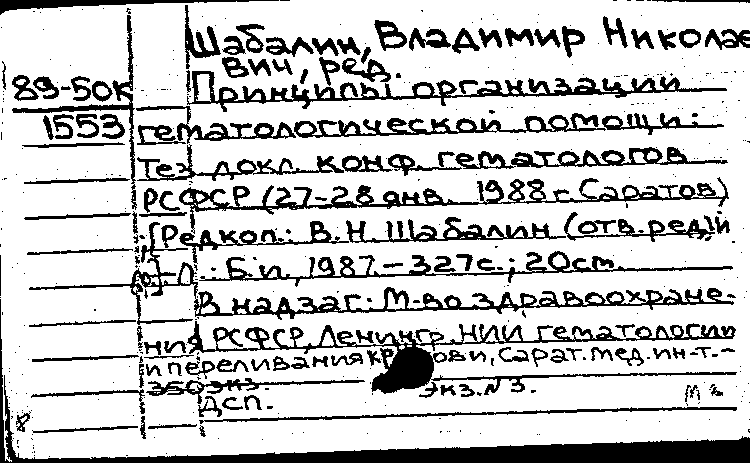 Шабалин, Владимир Николае
вич, ред.
89-50к
Принципы организации
1553
гематологической помощи:
Тез. докл. конф. гематологов
РСФСР (27-28 янв. 1988 г. Саратов)
/[Редкол.: В.Н. Шабалин (отв. ред.) и
др.]. - Л.: Б.и., 1987. - 327 с.; 20 см.
В надзаг.: М-во здравоохране-
ния РСФСР, Ленингр. НИИ гематологии
и переливания крови, Сарат. мед. ин-т. -
350 экз.
Экз. N 3.
ДСП.